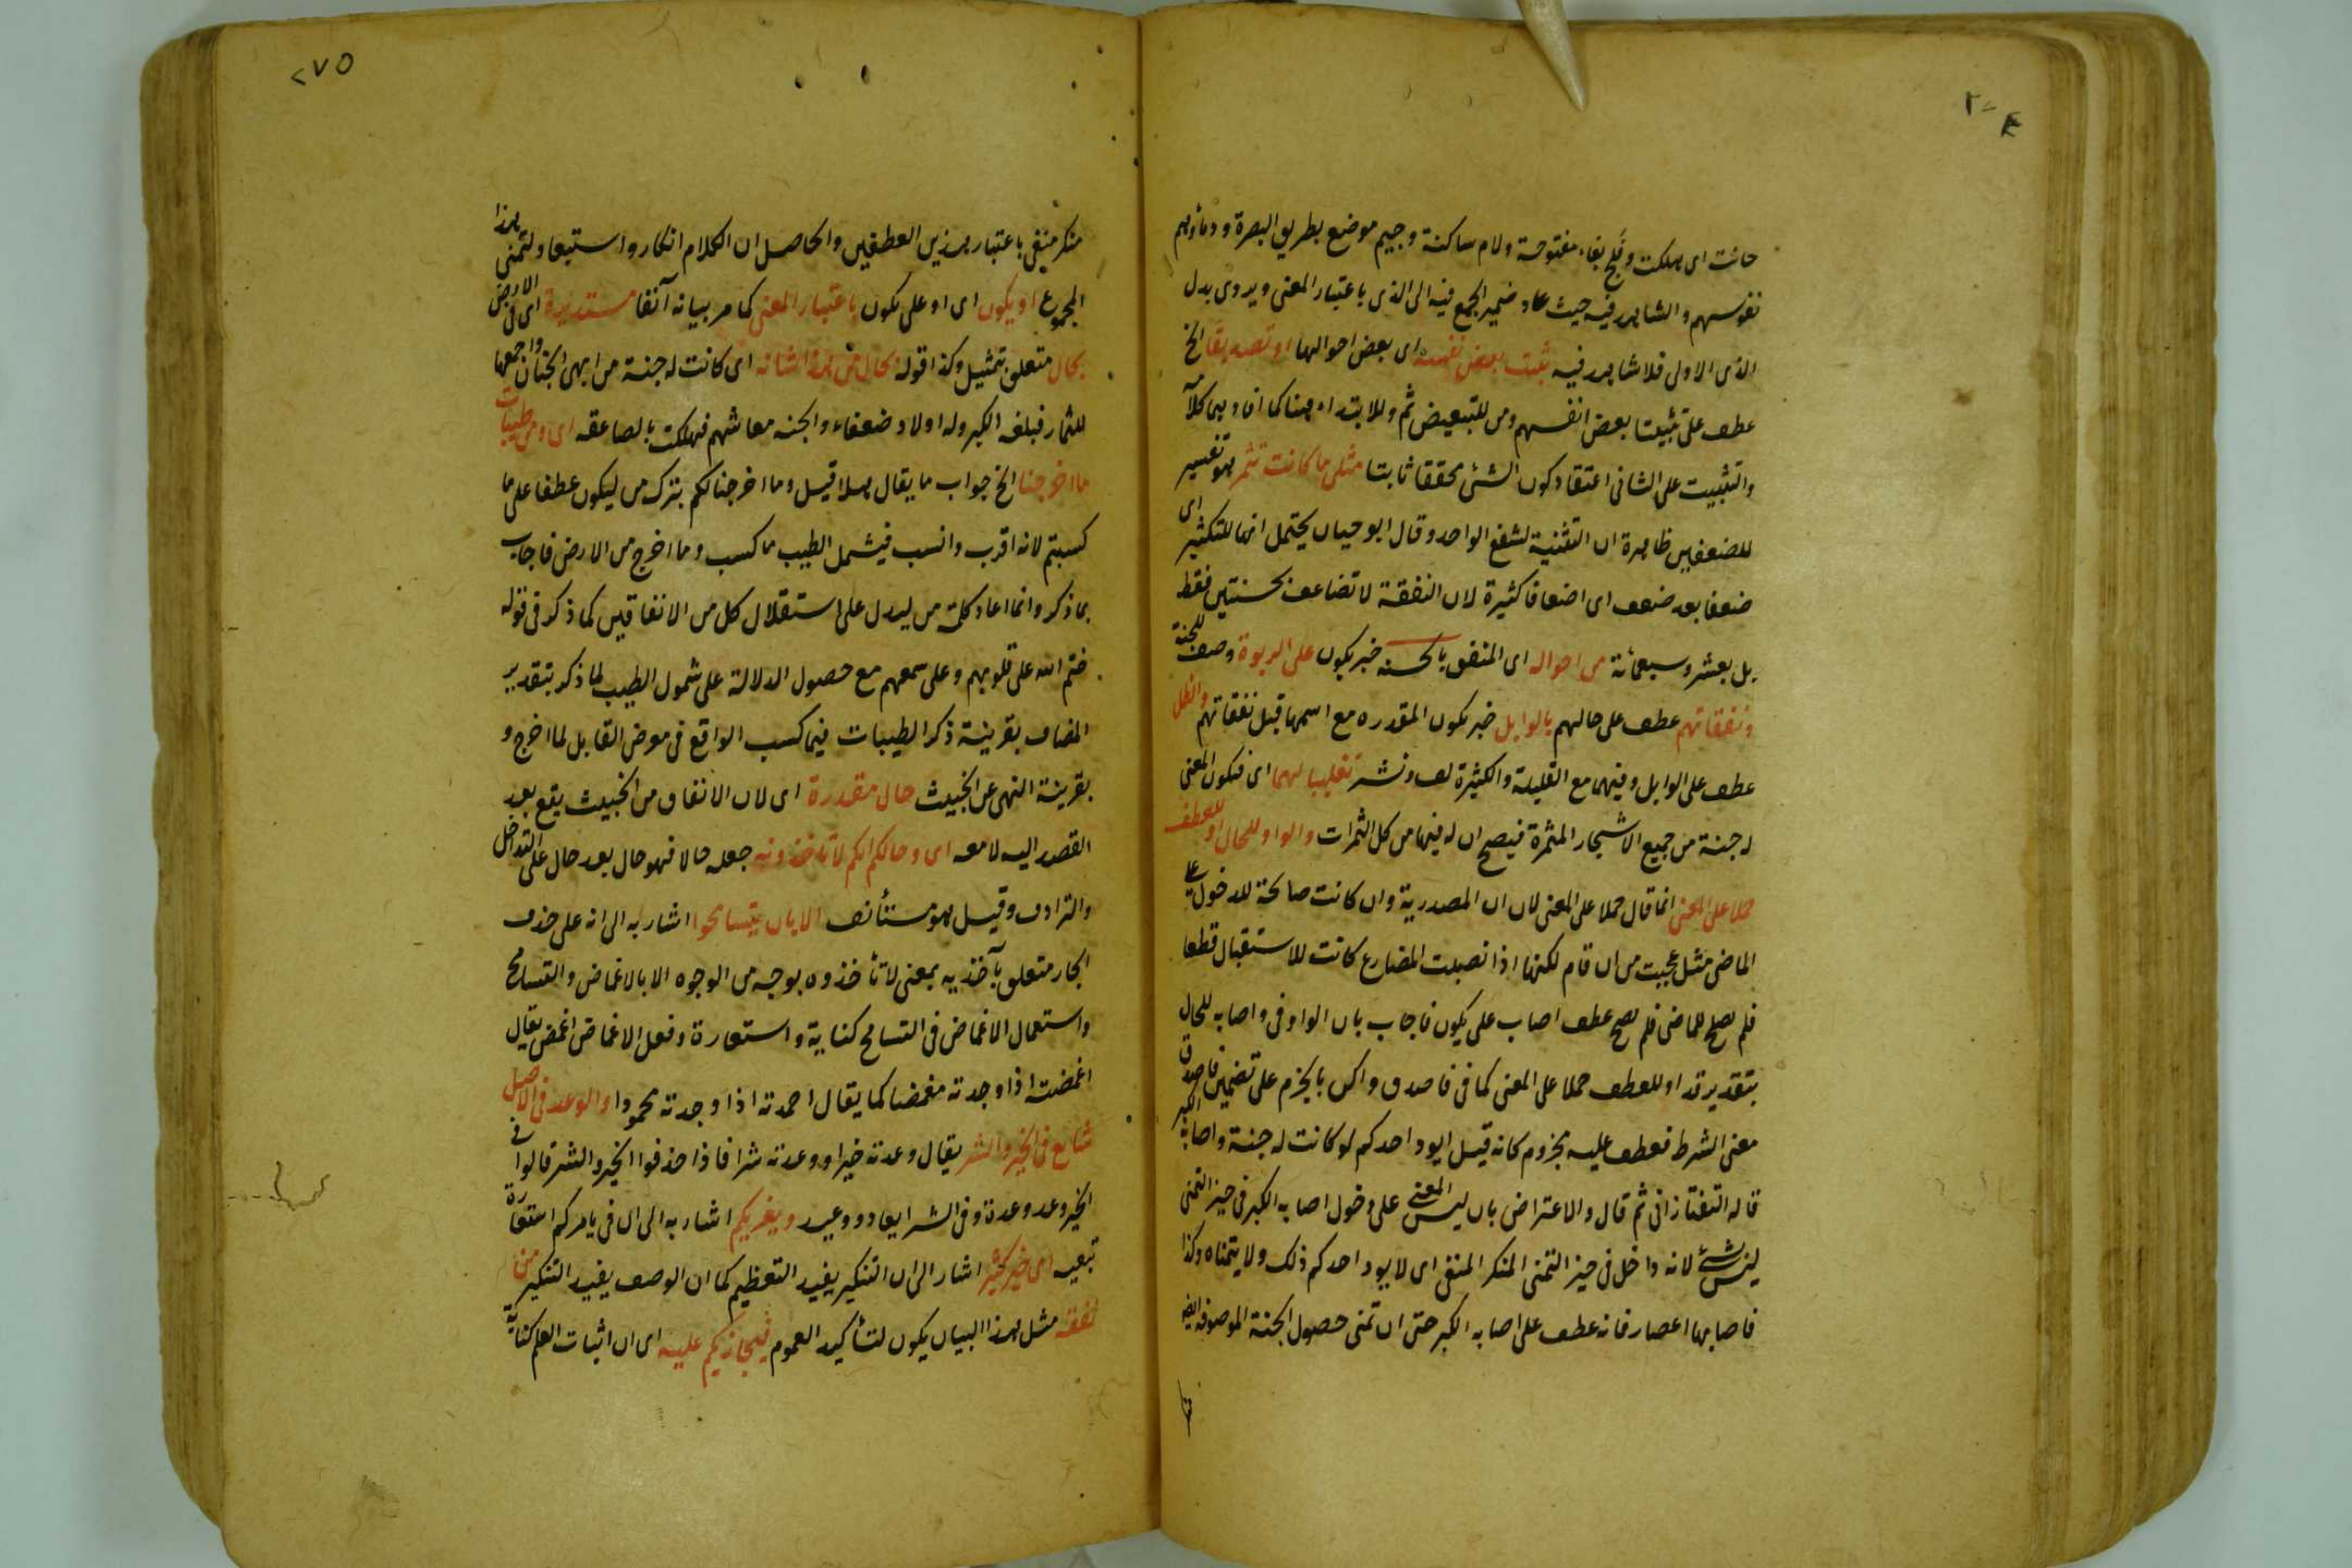 ٢٧٤
حانت اى هلكت وفلج بفاء مفتوحة ولام ساكنة وجيم موضع بطريق البصرة ودماؤهم
نفوسهم والشاهد فيه حيث عاد ضمير الجمع فيه الى الذى باعتبار المعنى ويروى بدل
الذى الاولى فلا شاهد فيه ثبت بعض نفسه اى بعض احوالها او تصديقا الخ
عطف على تثبيتا بعض انفسهم ومن للتبعيض ثم وللابتداء هنا كما افاد بها كلامه
والتثبيت على الثانى اعتقاد كون الشئ محققا ثابتا مثلى ما كانت تثمر هو تفسير
للضعفين ظاهرة ان التثنية لشفع الواحد وقال ابو حيان يحتمل انها للتكثير اى
ضعفا بعد ضعف اى اضعافا كثيرة لان النفقة لا تضاعف بحسنتين فقط
بل بعشر وسبعمائة من احواله اى المنفق بالحسنه خبر يكون على الربوة وصف للجنة
ونفقاتهم عطف على حالهم بالوابل خبر يكون المقدره مع اسمها قبل نفقاتهم والطل
عطف على الوابل وفيهما مع القليلة والكثيرة لف ونشر تغليبا لهما اى فيكون المعنى
له جنة من جميع الاشجار المثمرة فيصح ان له فيها من كل الثمرات والواو للحال او للعطف
حملا على المعنى انما قال حملا على المعنى لان ان المصدرية وان كانت صالحة للدخول على
الماضى مثل عجبت من ان قام لكنها اذا نصبت المضارع كانت للاستقبال قطعا
فلم يصلح للماضى فلم يصح عطف اصاب على يكون فاجاب بان الواو فى واصابه للحال
بتقدير قد او للعطف حملا على المعنى كما فى فاصدق واكن بالجزم على تضمين فاصدق
معنى الشرط فعطف عليه مجزوم كانه قيل ايود احدكم لو كانت له جنة واصابه الكبر
قاله التفتازانى ثم قال والاعتراض بان ليس المعنى على دخول اصابه الكبر فى حيز التمنى
ليس بشئ لانه داخل فى حيز التمنى المنكر المنفى اى لا يود احدكم ذلك ولا يتمناه وكذا
فاصابها اعصار فانه عطف على اصابه الكبر حتى ان تمنى حصول الجنة الموصوفه ايضا
٢٧٥
منكر منفى باعتبار هذين العطفين والحاصل ان الكلام انكار واستبعاد لتمنى هذا
المجموع او يكون اى او على يكون باعتبار المعنى كما مر بيانه آنفا مستديرة اى فى الارض
بحال متعلق بتمثيل وكذا قوله بحال من هذا شانه اى كانت له جنة من ابهى الجنان واجمعها
للثمار فبلغه الكبر وله اولاد ضعفاء والجنه معاشهم فهلكت بالصاعقه اى ومن طيبات
ما اخرجنا الخ جواب ما يقال هلا قيل وما اخرجنا لكم بترك من ليكون عطفا على ما
كسبتم لانه اقرب وانسب فيشمل الطيب مما كسب وما اخرج من الارض فاجاب
بما ذكر وانما اعاد كلمة من ليدل على استقلال كل من الانفاقين كما ذكر فى قوله
ختم الله على قلوبهم وعلى سمعهم مع حصول الدلالة على شمول الطيب لما ذكر بتقدير
المضاف بقرينة ذكر الطيبات فيما كسب الواقع فى معرض التقابل لما اخرج و
بقرينة النهى عن الخبيث حال مقدرة اى لان الانفاق من الخبيث يقع بعد
القصد اليه لا معه اى وحالكم انكم لا تاخذونه جعله حالا فهو حال بعد حال على التداخل
والترادف وقيل هو مستأنف الا بان يتسامحوا اشار به الى انه على حذف
الجار متعلق بآخذيه بمعنى لا تأخذوه بوجه من الوجوه الا بالاغماض والتسامح
واستعمال الاغماض فى التسامح كناية واستعارة وفعل الاغماض اغمض يقال
اغمضته اذا وجدته مغمضا كما يقال احمدته اذا وجدته محمودا والوعد فى الاصل
شايع فى الخير والشر يقال وعدته خيرا ووعدته شرا فاذا حذفوا الخير والشر قالوا فى
الخير وعد وعدة وفى الشر ايعاد ووعيد ويغريكم اشار به الى ان فى يامركم استعارة
تبعيه اى خير كثير اشار الى ان التنكير يفيد التعظيم كما ان الوصف يفيد التنكير من
نفقه مثل هذا البيان يكون لتأكيد العموم فيجازيكم عليه اى ان اثبات العلم كناية